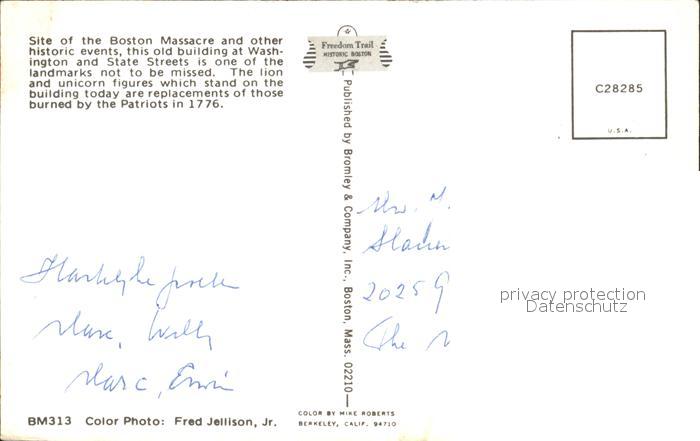 Site of the Boston Massacre and other
historic events, this old building at Wash-
ington and State Streets is one of the
landmarks not to be missed. The lion
and unicorn figures which stand on the
building today are replacements of those
burned by the Patriots in 1776.
Freedom Trail
HISTORIC BOSTON
Published by Bromley & Company, Inc., Boston, Mass. 02210
C28285
U.S.A.
2025
The
privacy protection
Datenschutz
Marc, Willy
Marc, Erwin
BM313 Color Photo: Fred Jellison, Jr.
COLOR BY MIKE ROBERTS
BERKELEY, CALIF. 94710